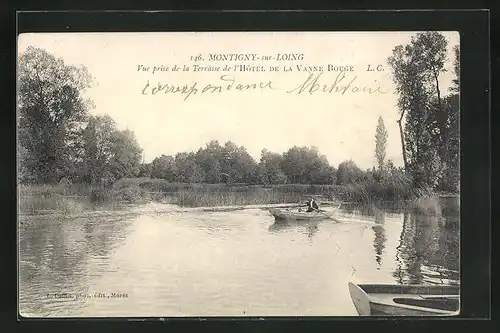 146. MONTIGNY-sur-LOING
Vue prise de la Terrasse de l'HÔTEL DE LA VANNE ROUGE L. C.
correspondance Militaire
phot. édit., Moret